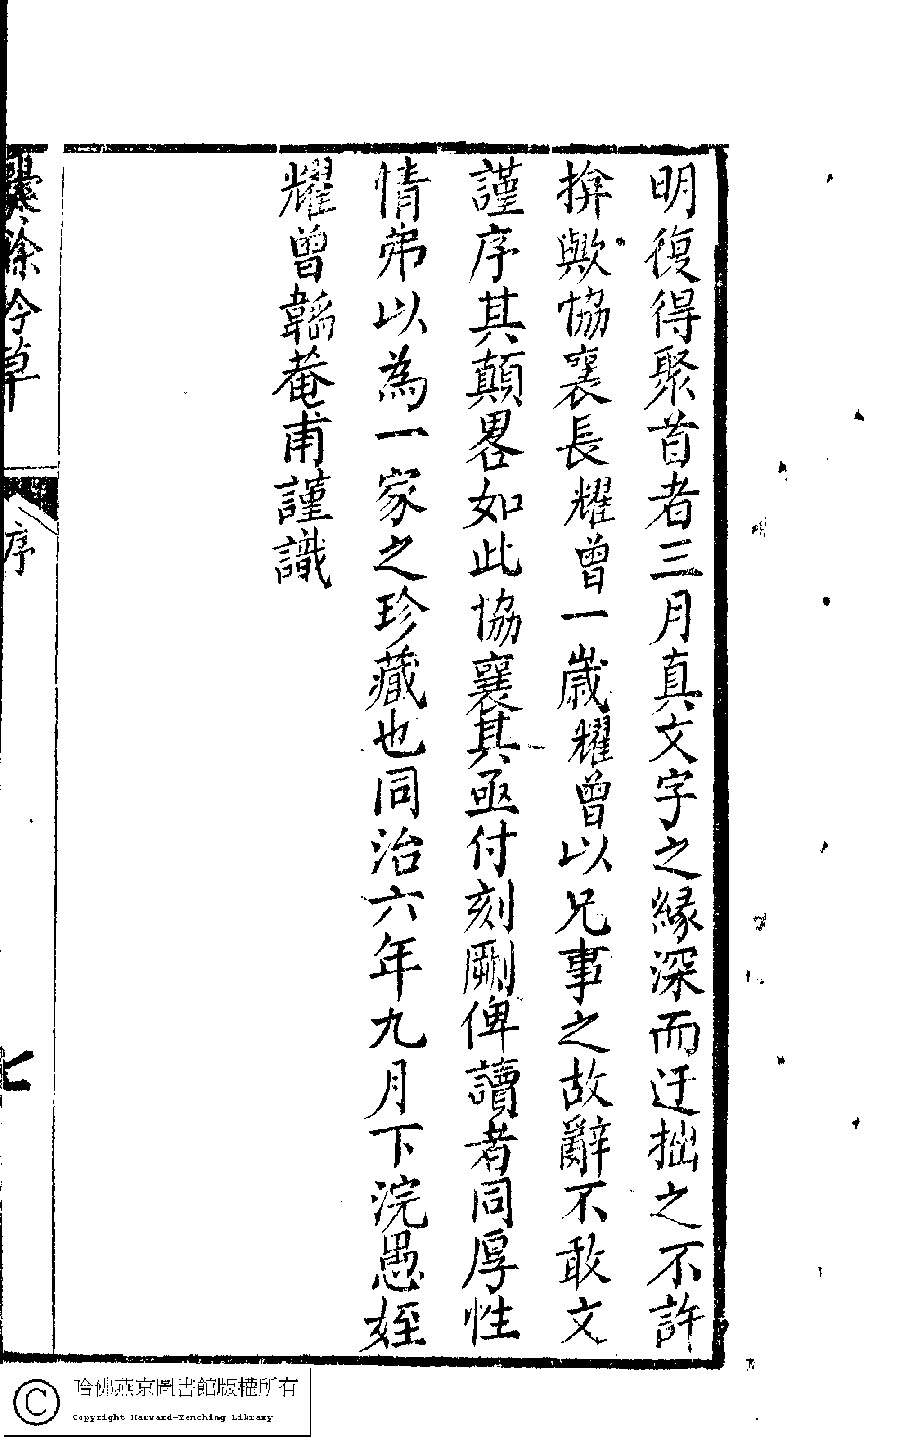 明復得聚首者三月真文字之緣深而迂拙之不許
揜歟協襄長耀曾一歲耀曾以兄事之故辭不敢文
謹序其顛畧如此協襄其亟付刻劂俾讀者同厚性
情弗以為一家之珍藏也同治六年九月下浣愚姪
耀曾韜菴甫謹識
爨餘吟草
序
七
哈佛燕京圖書館版權所有
Copyright Harvard-Yenching Library